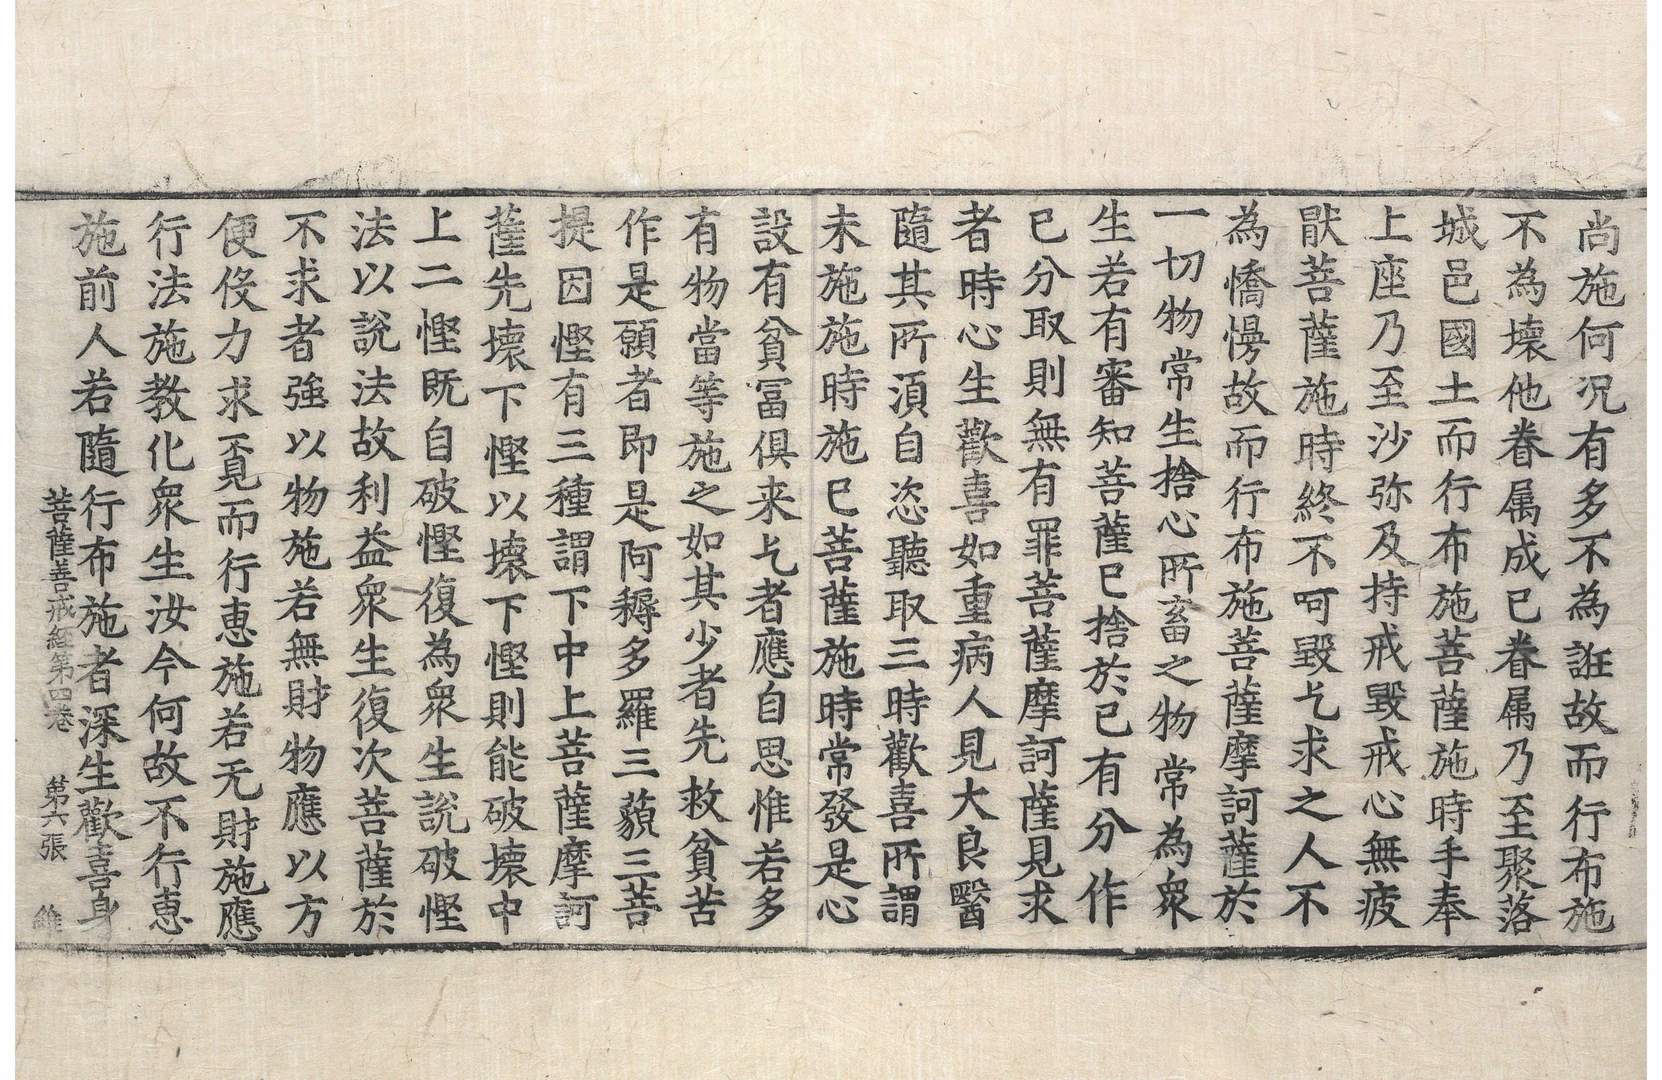 尚施何况有多不為誑故而行布施
不為壞他眷属成已眷属乃至聚落
城邑國土而行布施菩薩施時手奉
上座乃至沙弥及持戒毀戒心無疲
猒菩薩施時終不呵毀乞求之人不
為憍慢故而行布施菩薩摩訶薩於
一切物常生捨心所畜之物常為衆
生若有審知菩薩已捨於已有分作
已分取則無有罪菩薩摩訶薩見求
者時心生歡喜如重病人見大良醫
隨其所湏自恣聽取三時歡喜所謂
未施施時施已菩薩施時常發是心
設有貧冨俱来乞者應自思惟若多
有物當等施之如其少者先救貧苦
作是願者即是阿耨多羅三藐三菩
提因慳有三種謂下中上菩薩摩訶
薩先壞下慳以壞下慳則能破壞中
上二慳既自破慳復為衆生說破慳
法以說法故利益衆生復次菩薩於
不求者強以物施若無財物應以方
便伇力求覔而行恵施若无財施應
行法施教化衆生汝今何故不行恵
施前人若隨行布施者深生歡喜身
菩薩善戒經第四卷 第六張 維